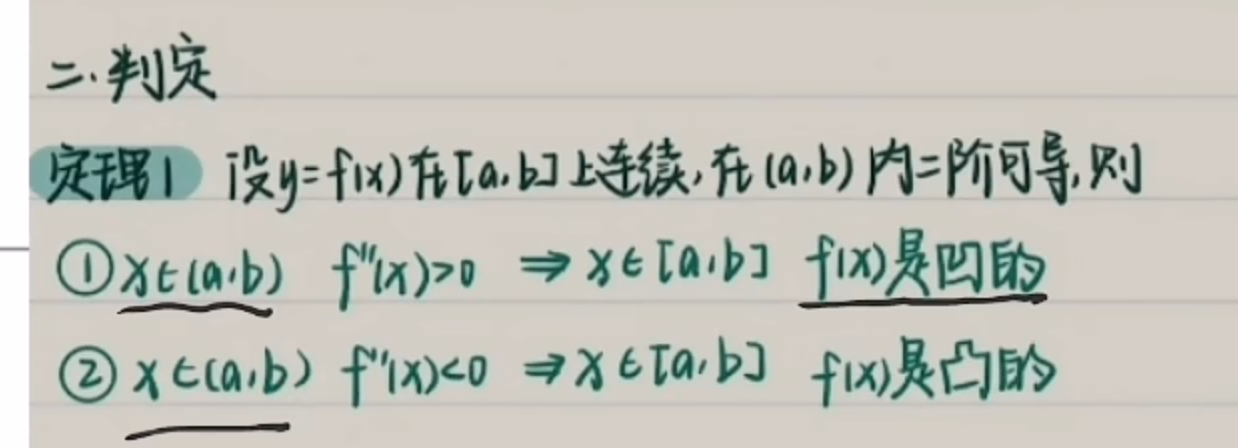 二.判定
定理1 设y=f(x)在[a,b]上连续,在(a,b)内二阶可导,则
①x∈(a,b) f''(x)>0 ⇒x∈[a,b] f(x)是凹的
②x∈(a,b) f''(x)<0 ⇒x∈[a,b] f(x)是凸的